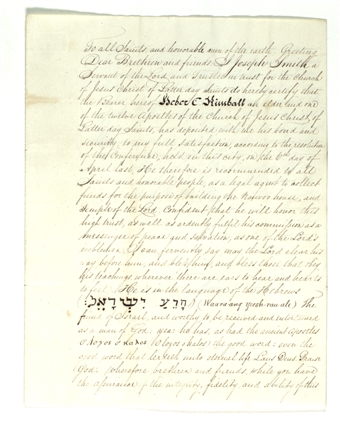 To all Saints, and honorable men of the earth; Greeting.
Dear Brethren and friends, I Joseph Smith, a
Servant of the Lord, and Trustee in trust for the Church
of Jesus Christ of Latter day Saints do hereby certify that
the Bearer hereof, Heber C Kimball an elder and one
of the twelve Apostles of the Church of Jesus Christ, of
Latter day Saints, has deposited with me his bond and
security, to my full satisfaction, according to the resolution
of the Conference, held in this city, on the 6th day of
April last. He therefore is recommended to all
Saints and honorable people, as a legal agent to collect
funds for the purpose of building the Nauvoo house, and
temple of the Lord. Confident that he will honor this
high trust, as well, as ardently fulfil his commission, as a
messenger of peace and salvation, as one of the Lord's
noblemen, I can fervently say may the Lord clear his
way before him, and bless him, and bless those that obey
his teachings, wherever there are ears to hear and hearts
to feel. He is in the language of the Hebrews
ישראל
The
friend of Israel, and worthy to be received and entertained
as a man of God; yea he has, as had the ancient apostles
ο λογος ο καλος (O logos o kalos) the good word; even the
good word, that leadeth unto eternal life. Laus Deus: Praise
God. Wherefore brethren and friends, while you have
the assurance of the integrity, fidelity and ability of this